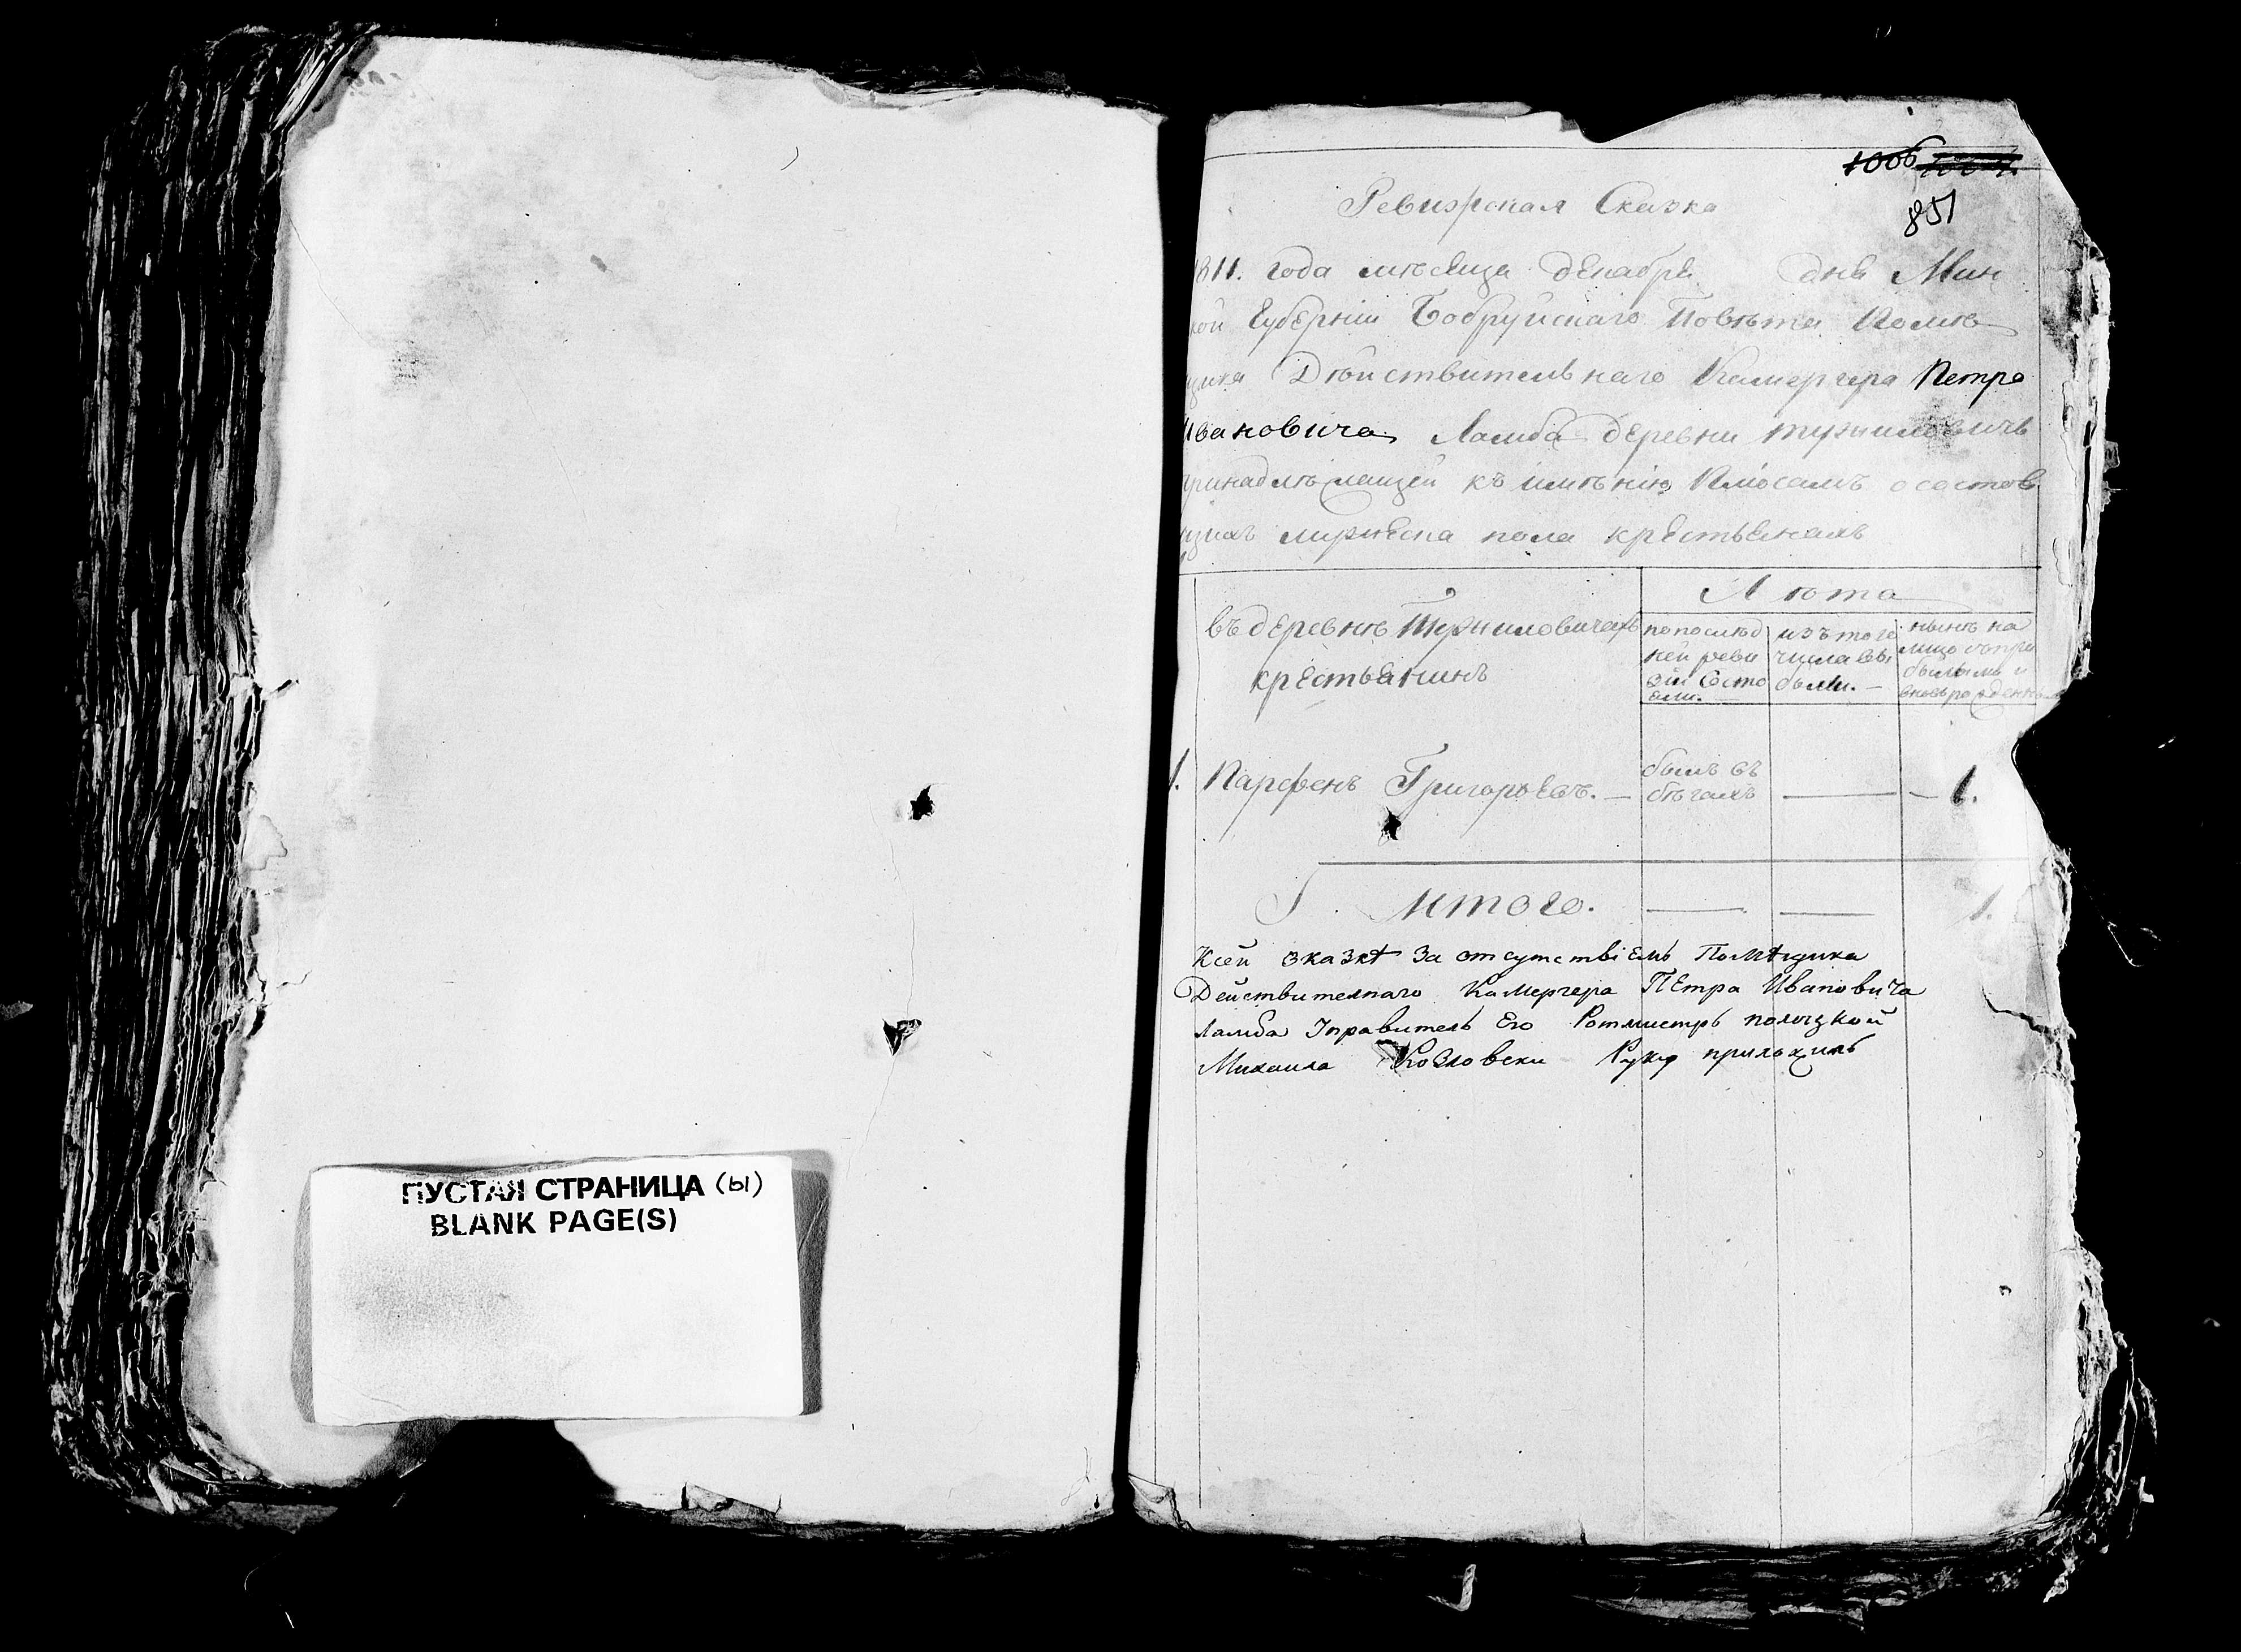 ПУСТАЯ СТРАНИЦА (ы)
BLANK PAGE(S)
1006
851
Ревизская Сказка
811. года мѣсеца декабре дня Мин
кой Губерніи Бобруйскаго Повѣта Помѣ
щика Дѣйствительнаго Камергера Петра
Ивановича Ламба деревни
принадлѣжащей къ имѣнію Плюсамъ о состоя
щихъ мужеска пола крестьянахъ
въ деревнѣ
крестьянинъ
Лѣта
по послѣд
ней реви
зіи состо
яли.
изъ того
числа вы
были. —
нынѣ на
лицо съ при
былымъ и
вновь рожденнымъ
1. Парфенъ Григорьевъ. — былъ въ бѣгахъ — — 1.
Итого. — — 1.
Ксей сказкѣ За отсутствіемъ Помѣщика
Действителнаго Камергера Петра Ивановича
Ламба Управитель Его Ротмистръ
Михаила Козловски Руку приложилъ